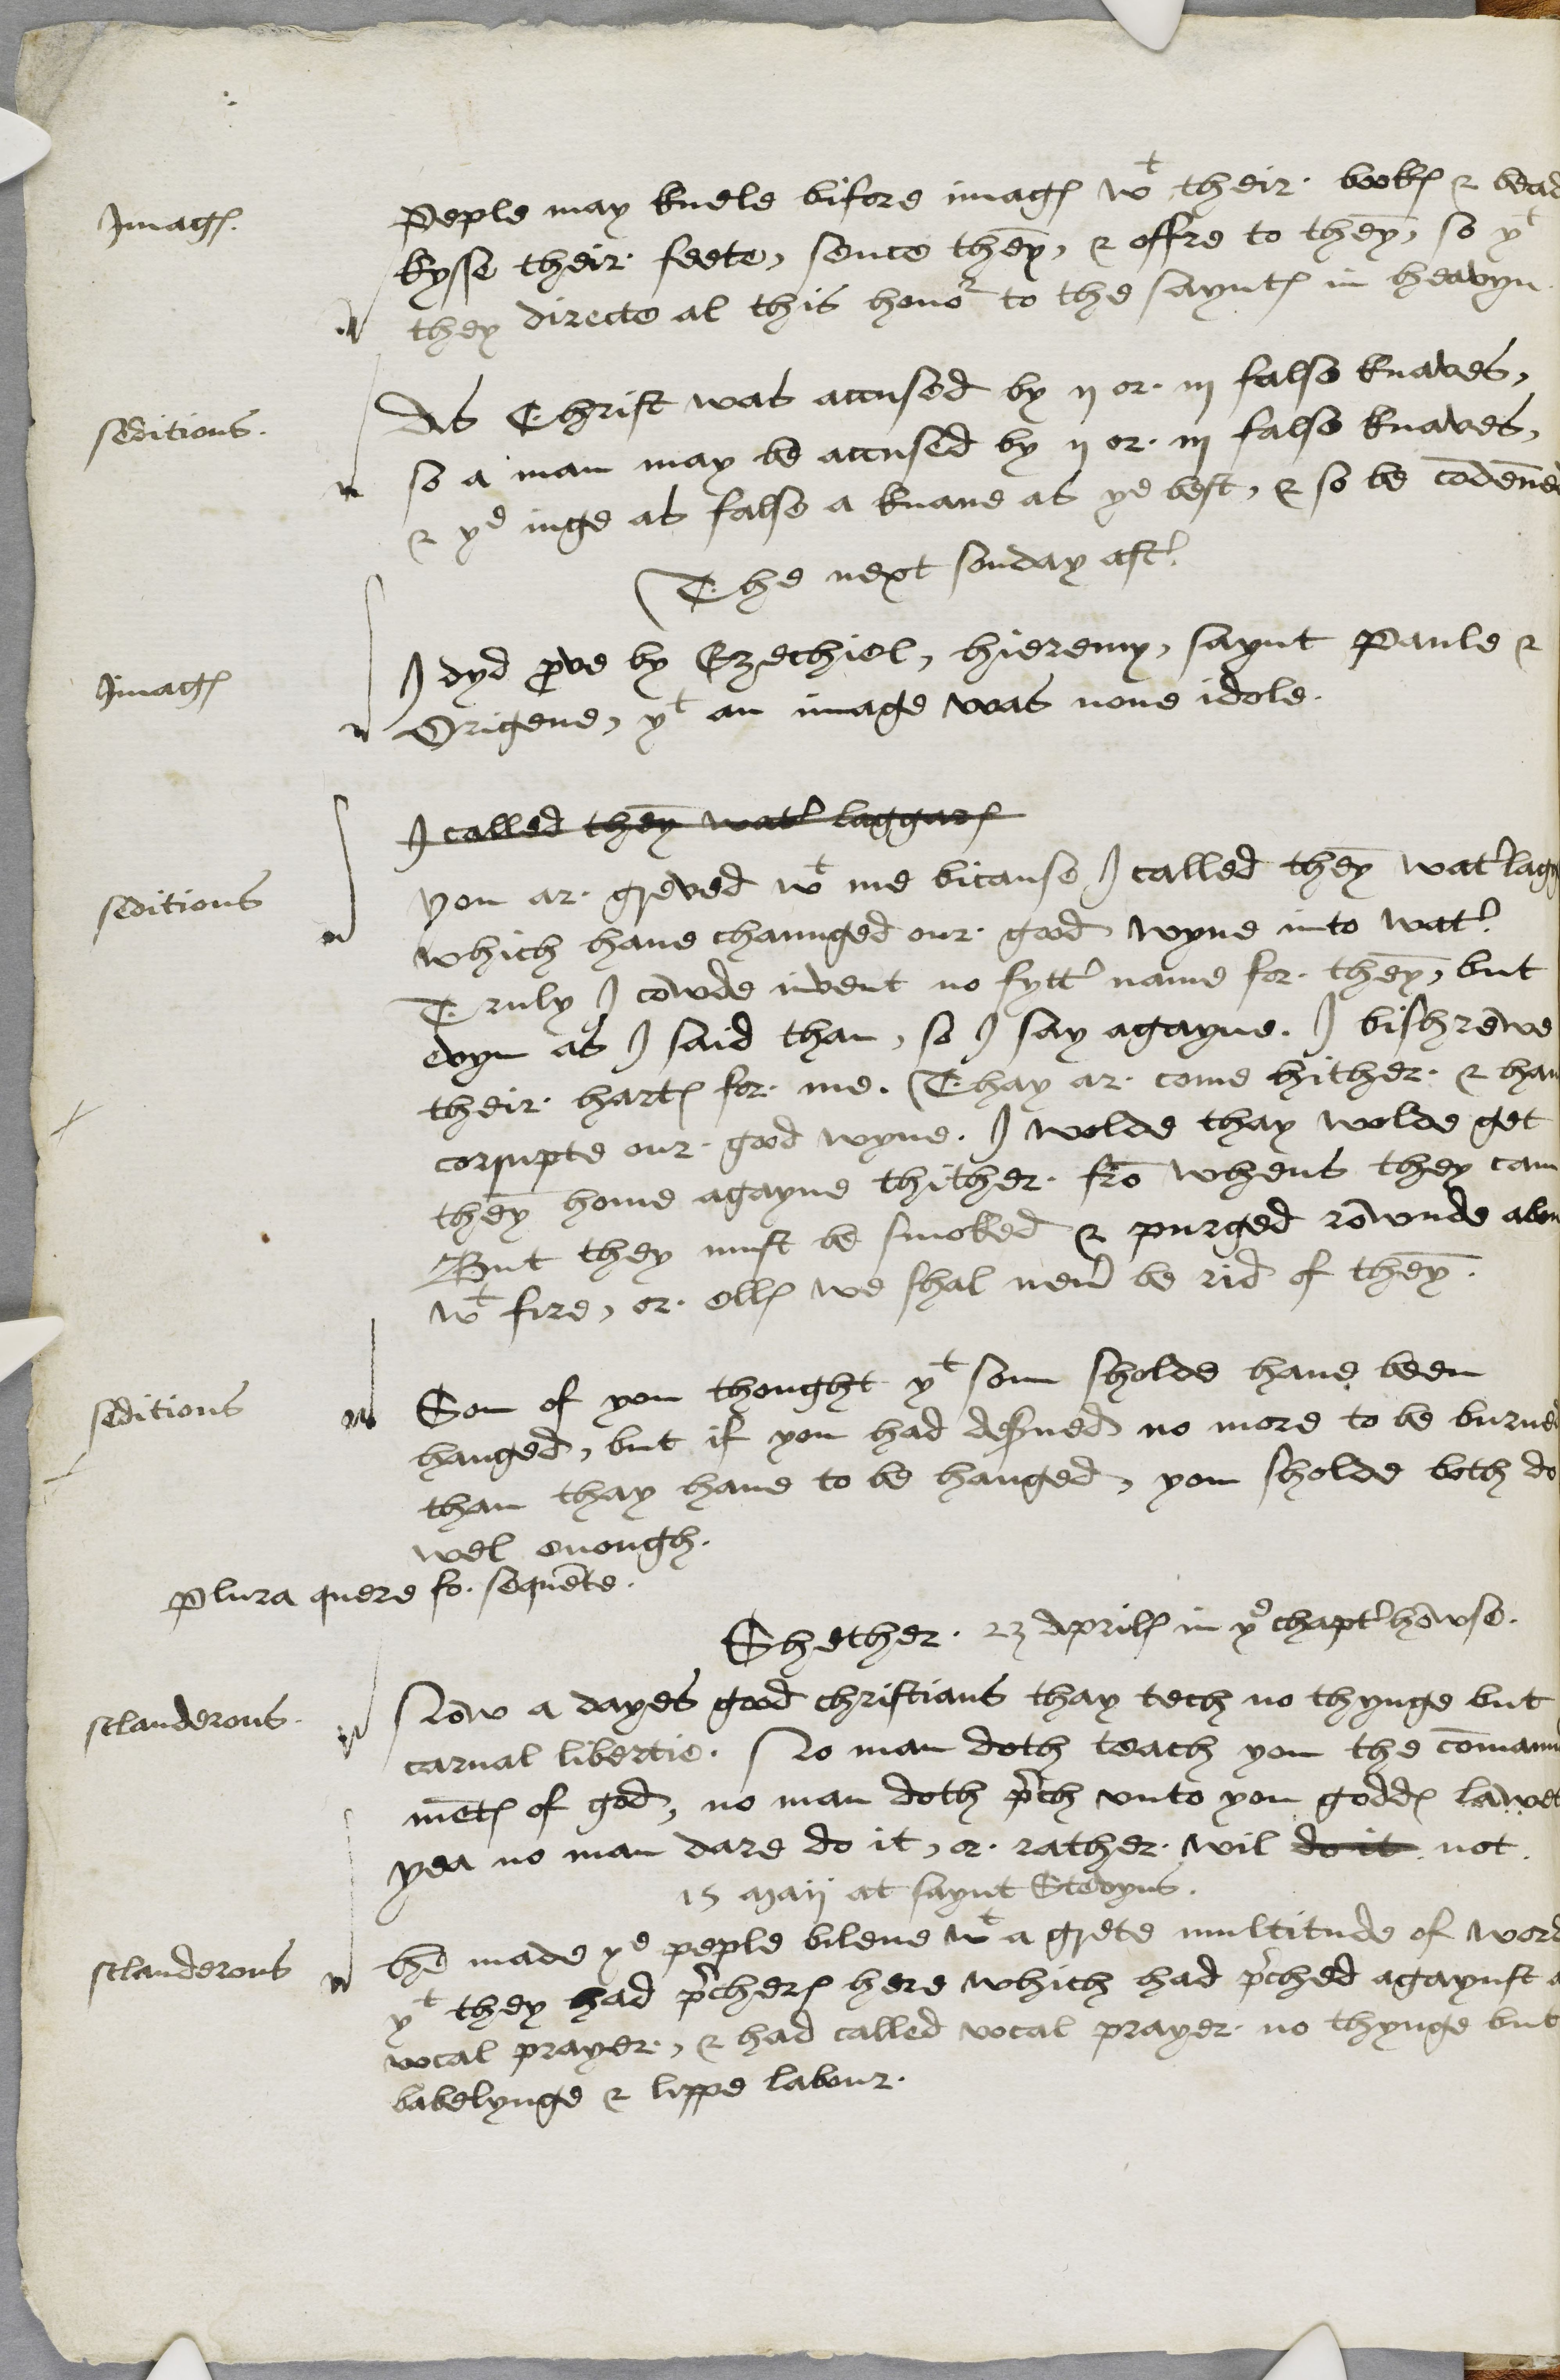 Imagꝭ.
Peple may knele bifore imagꝭ wᵗ their bookꝭ & bead
kysse their feete, sence thēy, & offre to thēy, so yᵗ
they directe al this honoʳ to the sayntꝭ in heavyn.
seditious.
As Christ was accused by ij or iij false knaves,
so a man may be accused by ij or iij false knaves,
& yᵉ iuge as false a knaue as yᵉ best, & so be cōdēned
The next sonday aft'
Imagꝭ
I dyd ꝓve by Ezechiel, hieremy, saynt Paule &
Origene, yᵗ an image was none idole.
I called thēy wat' laggarꝭ
seditious
you ar greved wᵗ me bicause I called thēy wat' lagg
which haue chaunged our good wyne into wat'.
Truly I cowde invent no fytt' name for thēy, but
evyn as I said than, so I say agayne. I bishrewe
their hartꝭ for me. Thay ar come hither & hau
corrupte our good wyne. I wolde thay wolde get
thēy home agayne thither frō whens they cam
But they must be smoked & purged rownde abou
wᵗ fire, or ellꝭ we shal neu' be rid of thēy.
seditious
Som of you thought yᵗ som sholde haue been
hanged, but if you had desꝰued no more to be burned
than thay haue to be hanged, you sholde both do
wel enough.
Plura quere fo. sequēte.
Shether. 23 Aprilꝭ in yᵉ chapt' howse.
sclanderous.
Now a dayes good christians thay tech no thynge but
carnal libertie. No man doth teach you the cōmaun
mētꝭ of god, no man doth p'ch vnto you goddꝭ lawes
yea no man dare do it, or rather wil do it not.
15 Maij at saynt Stevyns.
sclanderous
he made yᵉ peple bileue wᵗ a grete multitude of word
yᵗ they had p'cherꝭ here which had p'ched agaynst a
vocal prayer, & had called vocal prayer no thynge but
babelynge & lippe labour.